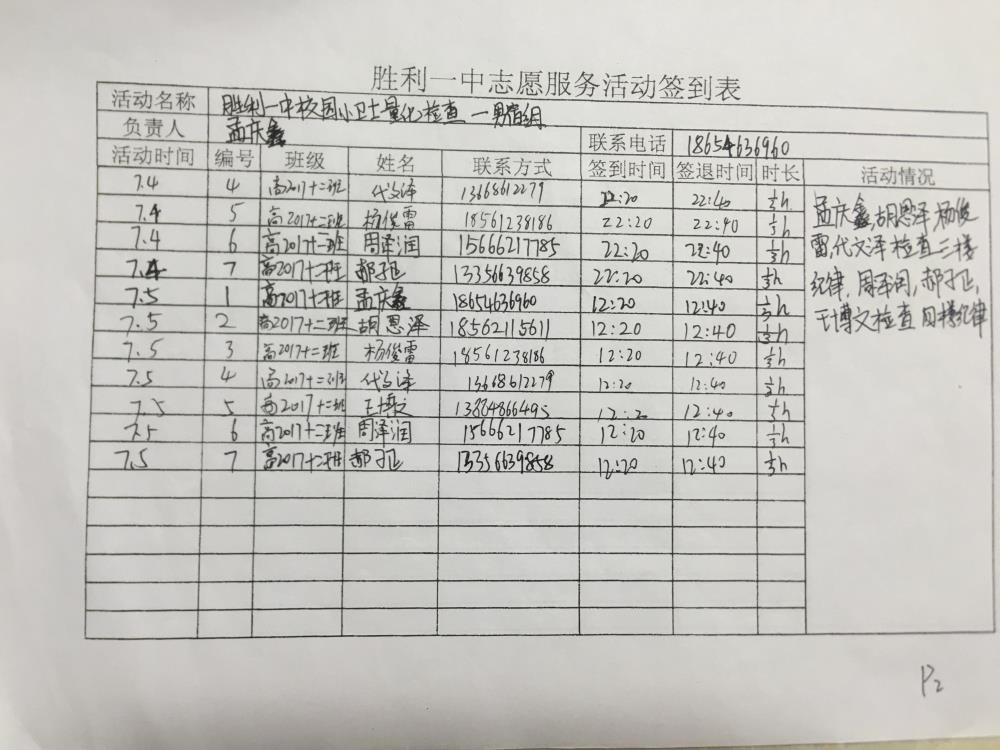 胜利一中志愿服务活动签到表
活动名称 胜利一中校园小卫士量化检查—男宿组
负责人 孟庆鑫 联系电话 18654636960
活动时间 编号 班级 姓名 联系方式 签到时间 签退时间 时长 活动情况
7.4 4 高2017十二班 代文泽 13668612279 22:20 22:40 ⅓h
7.4 5 高2017十二班 杨俊雷 18561238186 22:20 22:40 ⅓h
7.4 6 高2017十二班 周泽润 15666217785 22:20 22:40 ⅓h
7.4 7 高2017十二班 郝子正 13356639858 22:20 22:40 ⅓h
7.5 1 高2017十二班 孟庆鑫 18654636960 12:20 12:40 ⅓h
7.5 2 高2017十二班 胡恩泽 18562115611 12:20 12:40 ⅓h
7.5 3 高2017十二班 杨俊雷 18561238186 12:20 12:40 ⅓h
7.5 4 高2017十二班 代文泽 13668612279 12:20 12:40 ⅓h
7.5 5 高2017十二班 王博文 13884866495 12:20 12:40 ⅓h
7.5 6 高2017十二班 周泽润 15666217785 12:20 12:40 ⅓h
7.5 7 高2017十二班 郝子正 13356639858 12:20 12:40 ⅓h
孟庆鑫,胡恩泽,杨俊
雷,代文泽检查三楼
纪律,周泽润,郝子正,
王博文检查四楼纪律
P2